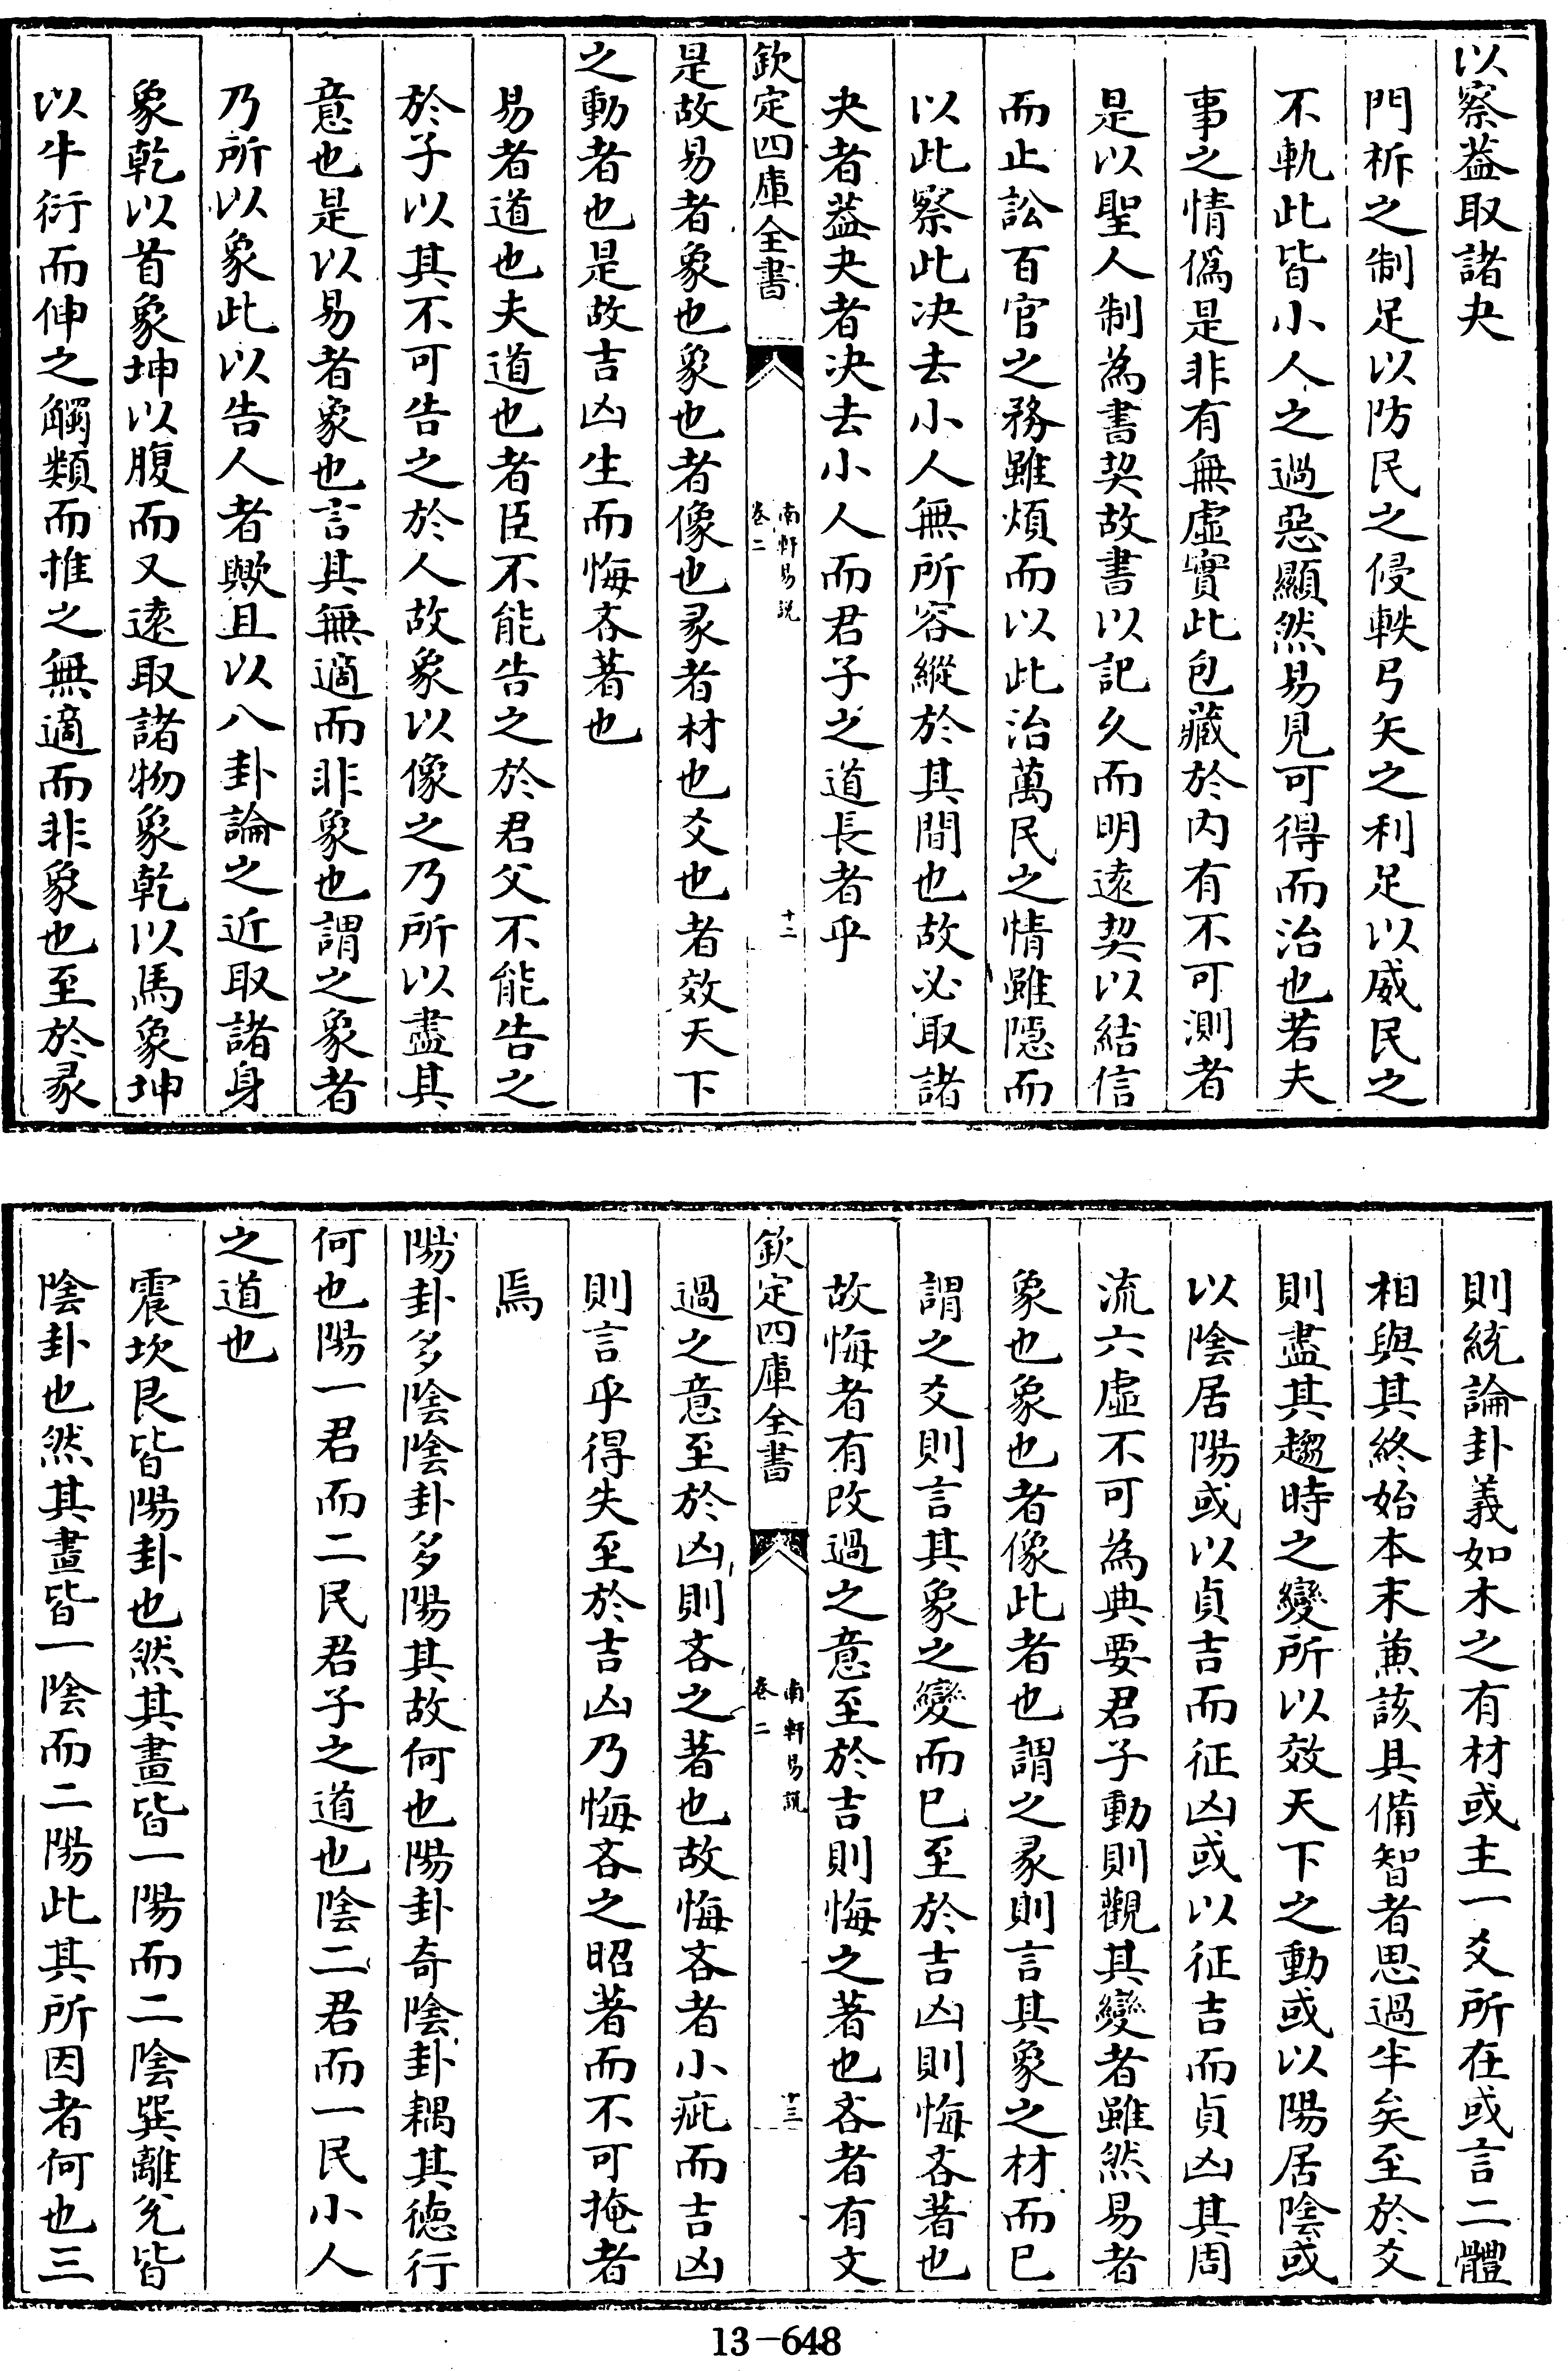 以察葢取諸夬
門柝之制足以防民之侵軼弓矢之利足以威民之
不軌此皆小人之過惡顯然易見可得而治也若夫
事之情僞是非有無虛實此包藏於内有不可測者
是以聖人制為書契故書以記久而明逺契以結信
而止訟百官之務雖煩而以此治萬民之情雖隱而
以此察此决去小人無所容縱於其間也故必取諸
夬者葢夬者决去小人而君子之道長者乎
欽定四庫全書
南軒易説
卷二
十二
是故易者象也象也者像也彖者材也爻也者效天下
之動者也是故吉凶生而悔吝著也
易者道也夫道也者臣不能告之於君父不能告之
於子以其不可告之於人故象以像之乃所以盡其
意也是以易者象也言其無適而非象也謂之象者
乃所以象此以告人者歟且以八卦論之近取諸身
象乾以首象坤以腹而又逺取諸物象乾以馬象坤
以牛衍而伸之觸類而推之無適而非象也至於彖
則統論卦義如木之有材或主一爻所在或言二體
相與其終始本末兼該具備智者思過半矣至於爻
則盡其趨時之變所以效天下之動或以陽居陰或
以陰居陽或以貞吉而征凶或以征吉而貞凶其周
流六虛不可為典要君子動則觀其變者雖然易者
象也象也者像此者也謂之彖則言其象之材而已
謂之爻則言其象之變而已至於吉凶則悔吝著也
故悔者有改過之意至於吉則悔之著也吝者有文
欽定四庫全書
南軒易説
卷二
十三
過之意至於凶則吝之著也故悔吝者小疵而吉凶
則言乎得失至於吉凶乃悔吝之昭著而不可掩者
焉
陽卦多陰陰卦多陽其故何也陽卦奇陰卦耦其德行
何也陽一君而二民君子之道也陰二君而一民小人
之道也
震坎艮皆陽卦也然其畫皆一陽而二陰巽離兊皆
陰卦也然其畫皆一陰而二陽此其所因者何也三
13-648